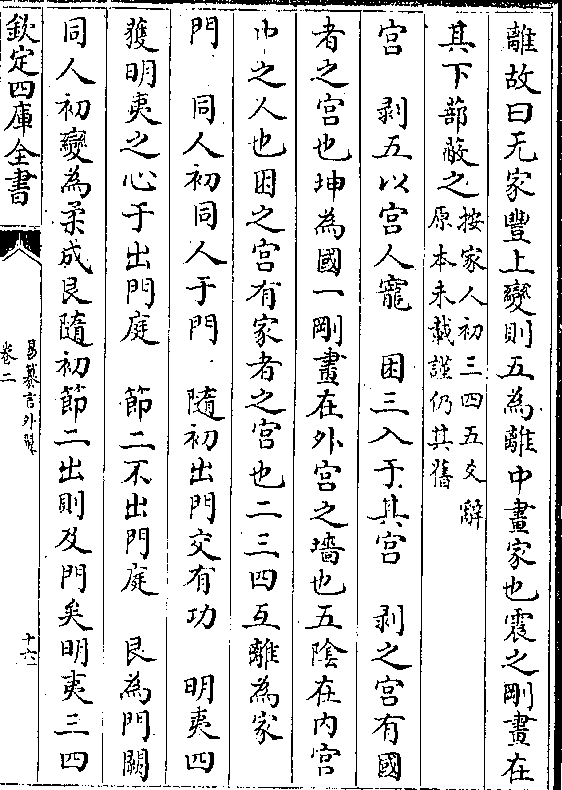 離故曰无家豐上變則五為離中畫家也震之剛畫在
其下蔀蔽之按家人初三四五爻辭
原本未載謹仍其舊
宫　剥五以宫人寵　困三入于其宫　剥之宫有國
者之宫也坤為國一剛畫在外宫之墻也五陰在内宫
中之人也困之宫有家者之宫也二三四互離為家
門　同人初同人于門　隨初出門交有功　明夷四
獲明夷之心于出門庭　節二不出門庭　艮為門闕
同人初變為柔成艮隨初節二出則及門矣明夷三四
欽定四庫全書
易纂言外翼
卷二
十六